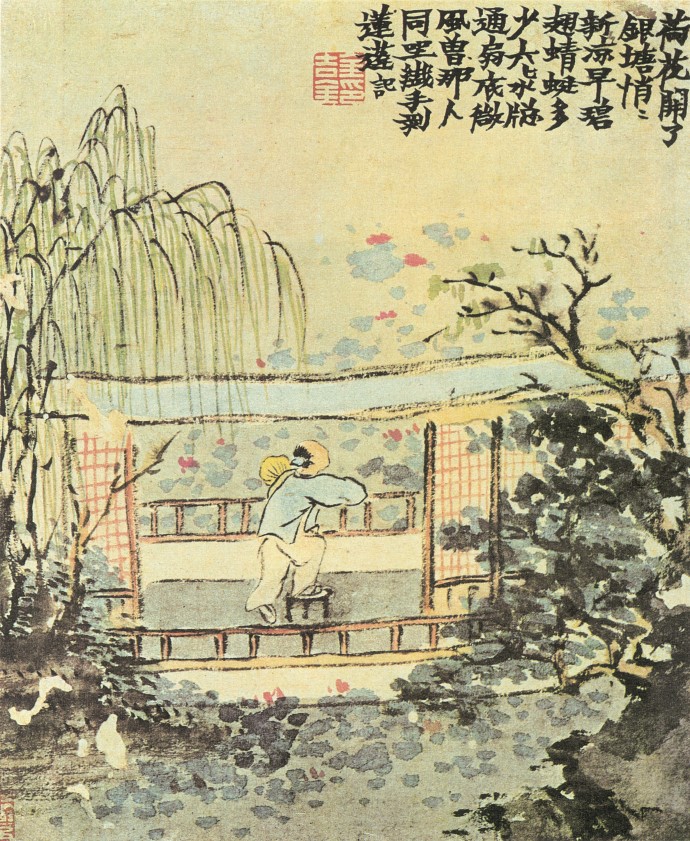 荷花開了
銀塘悄〻
新涼早碧
翅蜻蜓多
少六〻水牕
通扇底微
風曾那人
同坐纖手剝
蓮蓬 記
金印吉金